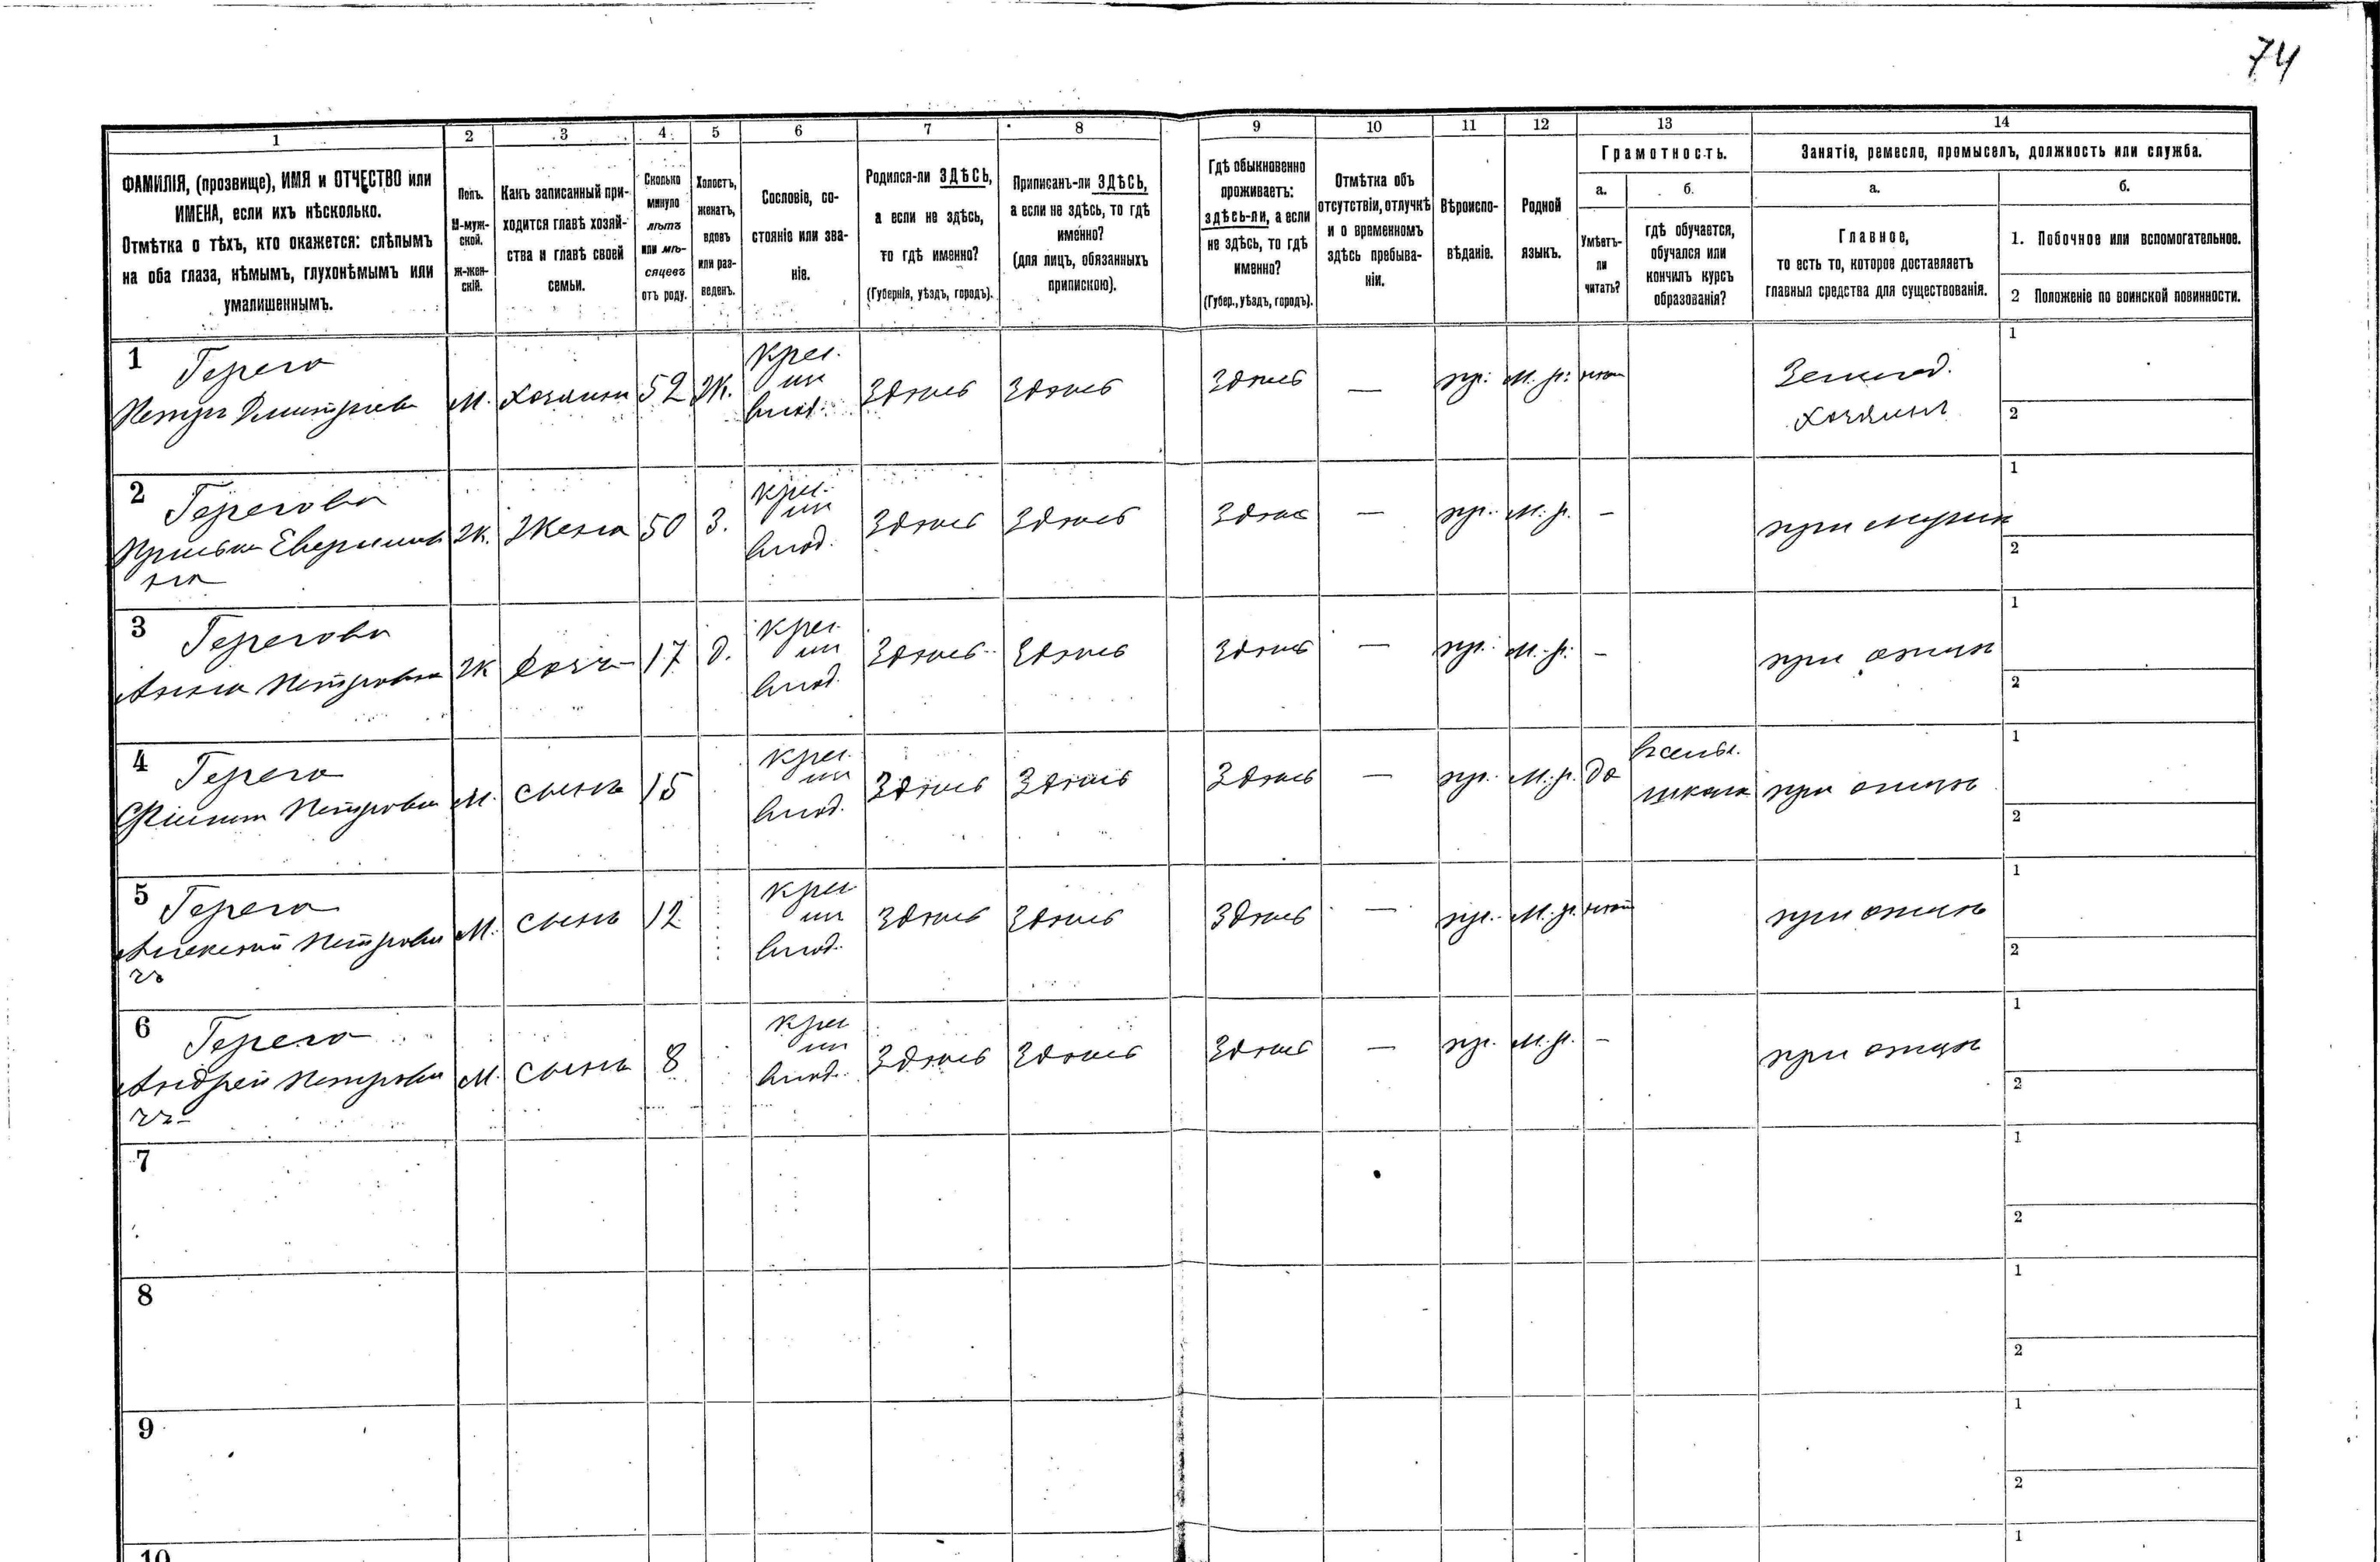 74
1 2 3 4 5 6 7 8 9 10 11 12 13 14
ФАМИЛІЯ, (прозвище), ИМЯ и ОТЧЕСТВО или
ИМЕНА, если ихъ нѣсколько.
Отмѣтка о тѣхъ, кто окажется: слѣпымъ
на оба глаза, нѣмымъ, глухонѣмымъ или
умалишеннымъ.
Полъ.
М-муж-
ской.
ж-жен-
скій.
Какъ записанный при-
ходится главѣ хозяй-
ства и главѣ своей
семьи.
Сколько
минуло
лѣтъ
или мѣ-
сяцевъ
отъ роду.
Холостъ,
женатъ,
вдовъ
или раз-
веденъ.
Сословіе, со-
стояніе или зва-
ніе.
Родился-ли ЗДѢСЬ,
а если не здѣсь,
то гдѣ именно?
(Губернія, уѣздъ, городъ).
Приписанъ-ли ЗДѢСЬ,
а если не здѣсь, то гдѣ
именно?
(для лицъ, обязанныхъ
припискою).
Гдѣ обыкновенно
проживаетъ:
здѣсь-ли, а если
не здѣсь, то гдѣ
именно?
(Губер., уѣздъ, городъ).
Отмѣтка объ
отсутствіи, отлучкѣ
и о временномъ
здѣсь пребыва-
ніи.
Вѣроиспо-
вѣданіе.
Родной
языкъ.
Грамотность.
а.
Умѣетъ-
ли
читать?
б.
гдѣ обучается,
обучался или
кончилъ курсъ
образованія?
Занятіе, ремесло, промыселъ, должность или служба.
а.
Главное,
то есть то, которое доставляетъ
главныя средства для существованія.
б.
1. Побочное или вспомогательное.
2 Положеніе по воинской повинности.
1 Герега
Петръ Дмитріевъ М. хозяинъ 52 Ж. Крес. Здѣсь Здѣсь Здѣсь — пр. М. р. нѣтъ Землед. хозяинъ 1 2
2 Герегова
Ж. Жена 50 З. Крес. Здѣсь Здѣсь Здѣсь — пр. М. р. — при мужѣ 1 2
3 Герегова
Анна Петровна Ж дочь 17 д. Крес. Здѣсь Здѣсь Здѣсь — пр. М. р. — при отцѣ 1 2
4 Герега
Филипп Петрович М. сынъ 15 Крес. Здѣсь Здѣсь Здѣсь — пр. М. р. да школа при отцѣ 1 2
5 Герега
Алексѣй Петрови
чъ М. сынъ 12 Крес. Здѣсь Здѣсь Здѣсь — пр. М. р. нѣтъ при отцѣ 1 2
6 Герега
Андрей Петрови
чъ М. сынъ 8 Крес. Здѣсь Здѣсь Здѣсь — пр. М. р. — при отцѣ 1 2
7 1 2
8 1 2
9 1 2
10 1